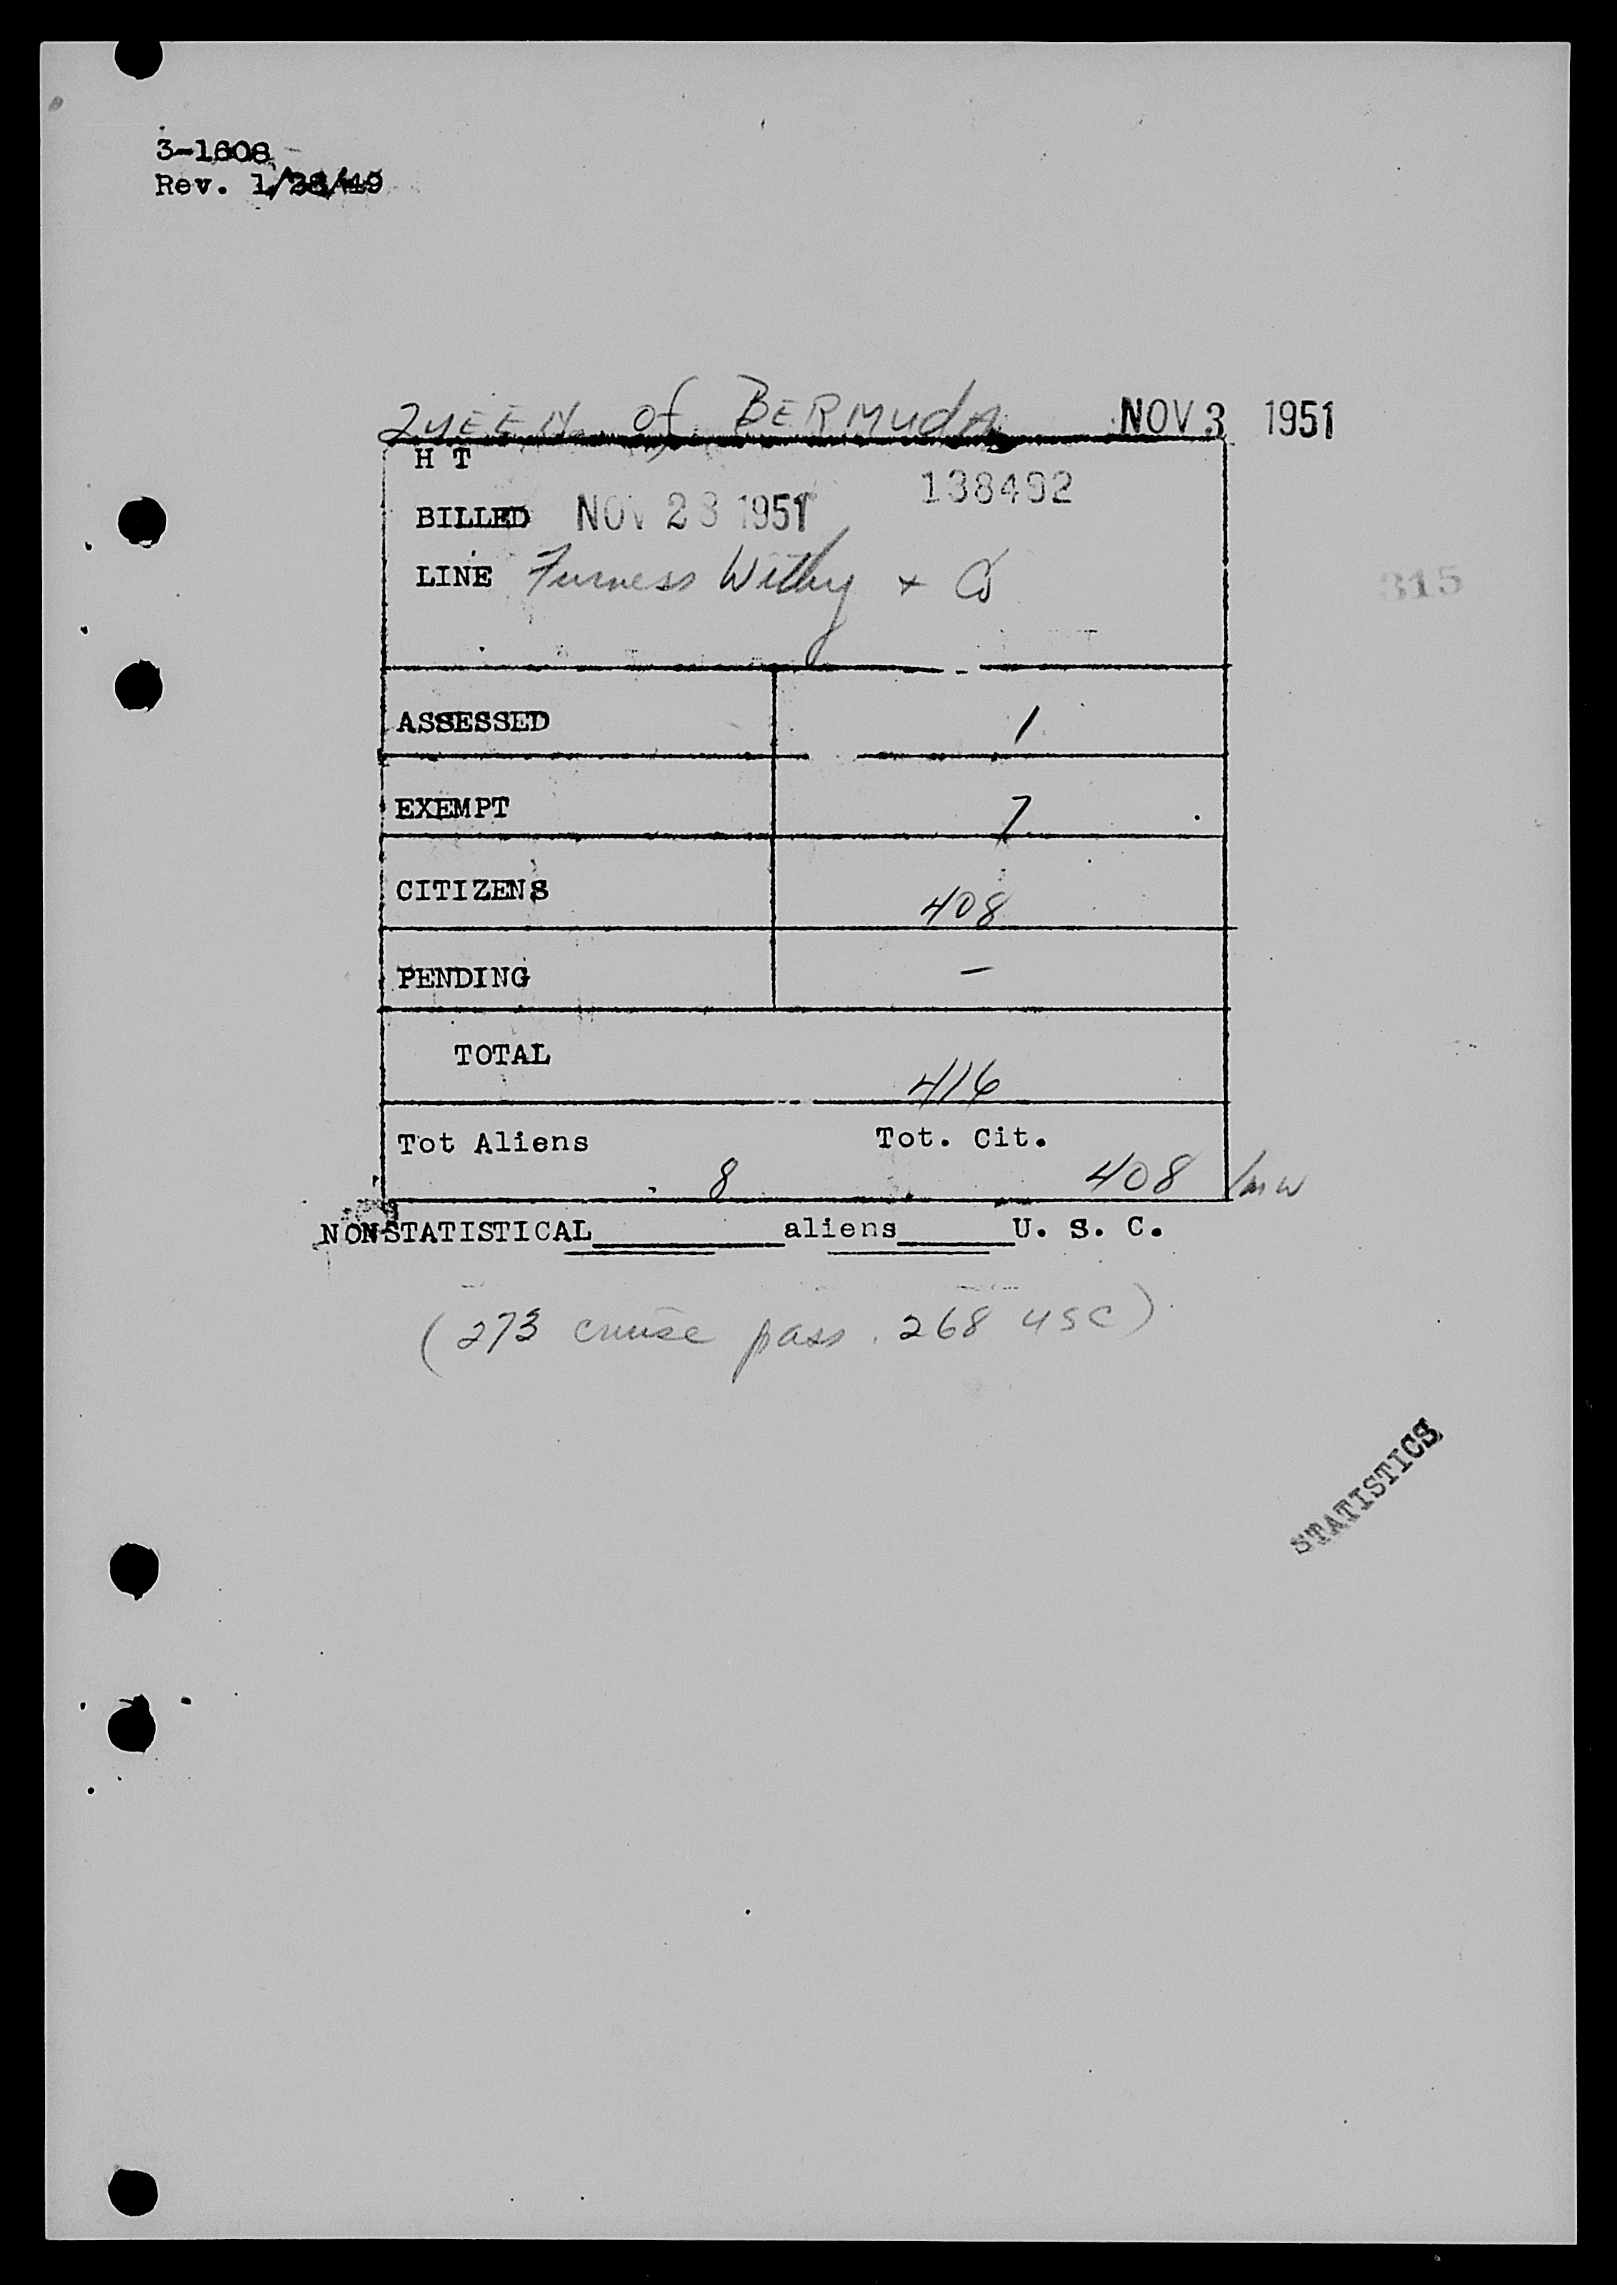 3-1608
Rev. 1/28/49
QUEEN of BERMUDA NOV 3 1951
H T
138492
BILLED NOV 23 1951
LINE Furness Withy + Co
315
ASSESSED 1
EXEMPT 7
CITIZENS 408
PENDING –
TOTAL 416
Tot Aliens 8 Tot. Cit. 408 /mw
NONSTATISTICAL aliens U. S. C.
(273 cruise pass. 268 USC)
STATISTICS